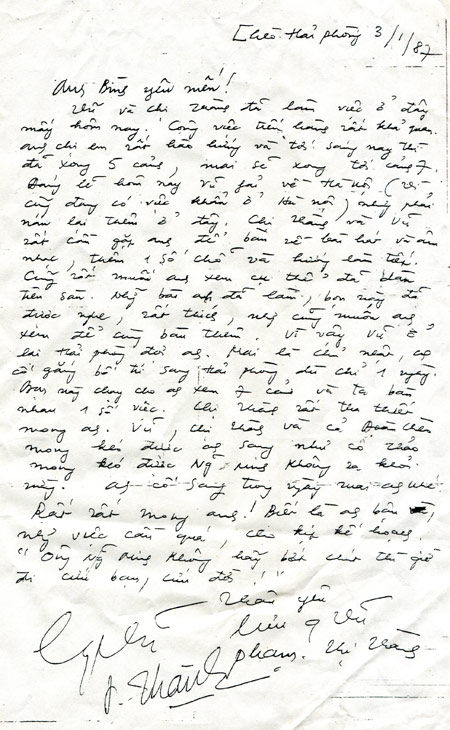 [Chèo Hải phòng 3/1/87
Anh Bỉnh yêu mến!
Vũ và chị Thàng đã làm việc ở đây
mấy hôm nay! Công việc tiến hành rất khả quan.
anh chị em rất hào hứng và tới sáng nay thì
đã xong 5 cảnh, mai sẽ xong tới cảnh 7.
Đáng lẽ hôm nay Vũ fải về Hà Nội (Vì
cũng đang có việc khẩn ở Hà nội) nhg phải
nán lại thêm ở đây. Chị Thàng và Vũ
rất cần gặp anh để bàn về bài hát và âm
nhạc, thêm 1 số chỗ và hướng làm tiếp.
Cũng rất muốn anh xem cụ thể đã
trên sàn. Nhg bài anh đã làm, bọn này đã
được nghe, rất thích, nhg cũng muốn anh
xem để cùng bàn thêm. Vì vậy Vũ ở
lại Hải phòng đợi anh. Mai là chủ nhật, anh
cố gắng bố trí sang Hải phòng dù chỉ 1 ngày.
Bọn này chạy cho anh xem 7 cảnh và ta bàn
nhau 1 số việc. Chị Thàng rất tha thiết
mong anh. Vũ, chị Thàng và cả Đoàn chèo
mong kéo được anh sang như cô Thảo
mong kéo được Ng Hùng không ra khỏi
này. anh cố sang trong ngày mai anh nhé
Rất rất mong anh! Biết là anh bận
nhg việc cần quá, cho kịp kế hoạch.
"Ông Ng Hùng không hãy bớt chút thì giờ
đi cứu bạn, cứu đời!"
Thân yêu
Lưu q Vũ
Phạm. Thị Thàng